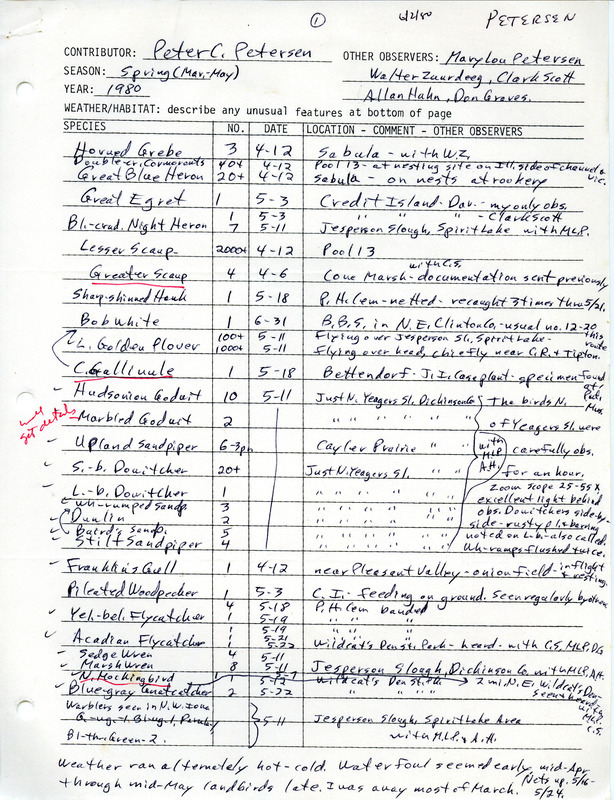 ① 4/2/80 PETERSEN
CONTRIBUTOR: Peter C. Petersen OTHER OBSERVERS: Mary Lou Petersen
SEASON: Spring (Mar.-May) Walter Zuurdeeg, Clark Scott
YEAR: 1980 Allan Hahn, Don Graves.
WEATHER/HABITAT: describe any unusual features at bottom of page
SPECIES NO. DATE LOCATION - COMMENT - OTHER OBSERVERS
Horned Grebe 3 4-12 Sabula - with W.Z.
Double-cr. Cormorants 40+ 4-12 Pool 13 - at nesting site on Ill. side of channel
Great Blue Heron 20+ 4-12 Sabula - on nests at rookery
Great Egret 1 5-3 Credit Island - Dav. - my only obs.
1 5-3 " " " - Clark Scott
Bl.-crnd. Night Heron 7 5-11 Jesperson Slough, Spirit Lake with MLP.
Lesser Scaup 2000+ 4-12 Pool 13
Greater Scaup 4 4-6 Cone Marsh - documentation sent previously
with C.S.
Sharp-shinned Hawk 1 5-18 P. H. Cem - netted - recaught 3 times thru 5/21.
Bob White 1 6-31 B.B.S. in N.E. Clinton Co. - usual no. 12-20 this route
L. Golden Plover 100+ 5-11 Flying over Jesperson Sl., Spirit Lake -
1000+ 5-11 flying over head, chiefly near C.R. & Tipton.
C. Gallinule 1 5-18 Bettendorf - J.I. Case plant - specimen found at Put. Mus.
Hudsonian Godwit 10 5-11 Just N. Yeagers Sl. Dickinson Co
will get details
Marbled Godwit 2
Upland Sandpiper 6-3pm Cayler Prairie " "
S.-b. Dowitcher 20+ Just N. Yeagers Sl. " "
L.-b. Dowitcher 1 " " " " "
Wh-rumped Sandp. 3 " " " " "
Dunlin 2 " " " " "
Baird's Sandp. 5 " " " " "
Stilt Sandpiper 4 " " " " "
with MLP A.H.
The birds N.
of Yeagers Sl. were
carefully obs.
for an hour,
Zoom scope 25-55X
excellent light behind
obs. Dowitchers side-by-
side - rusty pl. & barring
noted on L-b. - also called.
Wh-rumps flushed twice.
Franklin's Gull 1 4-12 near Pleasant Valley - onion field - in flight & resting.
Pileated Woodpecker 1 5-3 C. I. - feeding on ground. Seen regularly by others
Yel.-bel. Flycatcher 4 5-18 P. H. Cem banded
1 5-19 " " "
Acadian Flycatcher 1 5-19 " " "
1 5-21
1 5-22 Wildcat's Den St. Park - heard - with C.S, MLP, DG
Sedge Wren 4 5-11
Marsh Wren 8 5-11 Jesperson Slough, Dickinson Co. with MLP, A.H.
N. Mockingbird 1 5-12 Wildcat's Den St. Pk 2 mi. N.E. Wildcat's Den - seen & heard with MLP C.S.
Blue-gray Gnatcatcher 2 5-22 " " "
Warblers seen in N.W. Iowa
Bl-thr. Green - 2. 5-11 Jesperson Slough, Spirit Lake Area
with M.L.P. & A.H.
Weather ran alternately hot-cold. Waterfowl seemed early, mid-Apr.
through mid-May landbirds late. I was away most of March. Nets up. 5/16-
5/24.